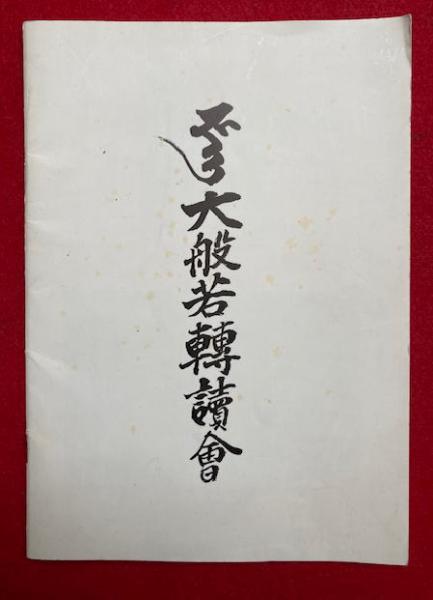 大般若轉讀會